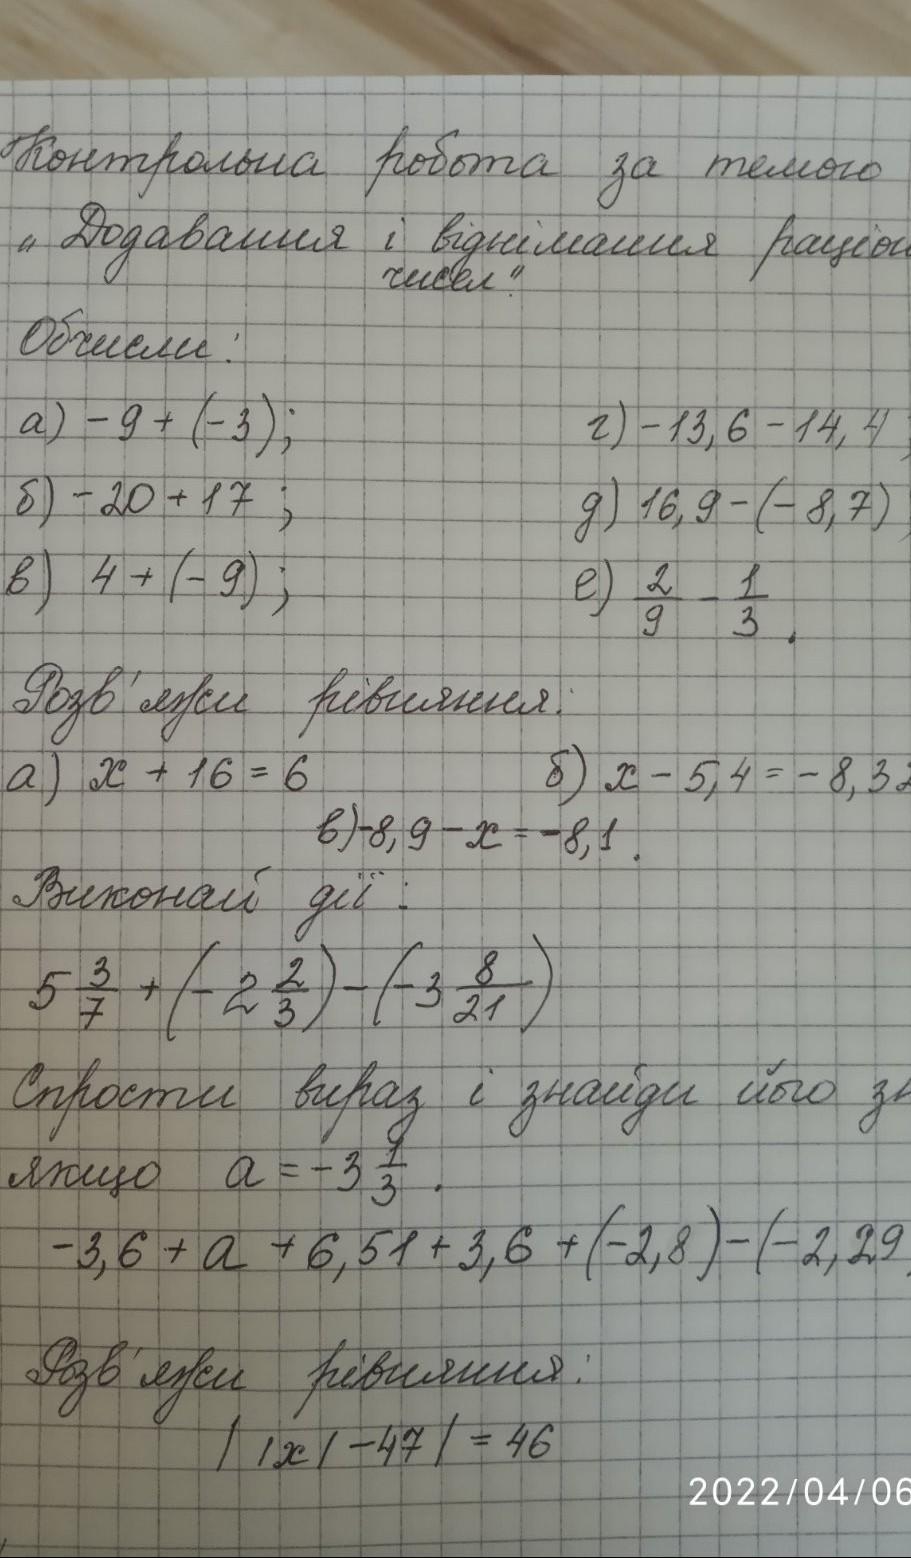 Контрольна робота за темою
„Додавання і віднімання раціон
чисел"
Обчисли:
а) -9 + (-3); г) -13,6 - 14,4;
б) -20 + 17; д) 16,9 - (-8,7)
в) 4 + (-9); е) 2/9 - 1/3.
Розв'яжи рівняння:
а) x + 16 = 6 б) x - 5,4 = -8,32
в) -8,9 - x = -8,1.
Виконай дії:
5 3/7 + (-2 2/3) - (-3 8/21)
Спрости вираз і знайди його зн
якщо a = -3 1/3.
-3,6 + a + 6,51 + 3,6 + (-2,8) - (-2,29)
Розв'яжи рівняння:
||x| - 47| = 46
2022/04/06